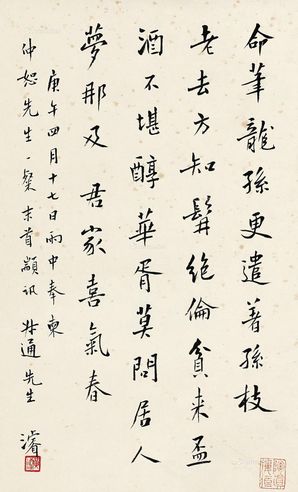 命筆龍孫更遣著孫枝
老去方知髯絕倫貧来盃
酒不堪醇華胥莫問居人
夢那及君家喜氣春
庚午四月十七日雨中奉柬
仲恕先生一粲末首顓訊牀通先生
濬